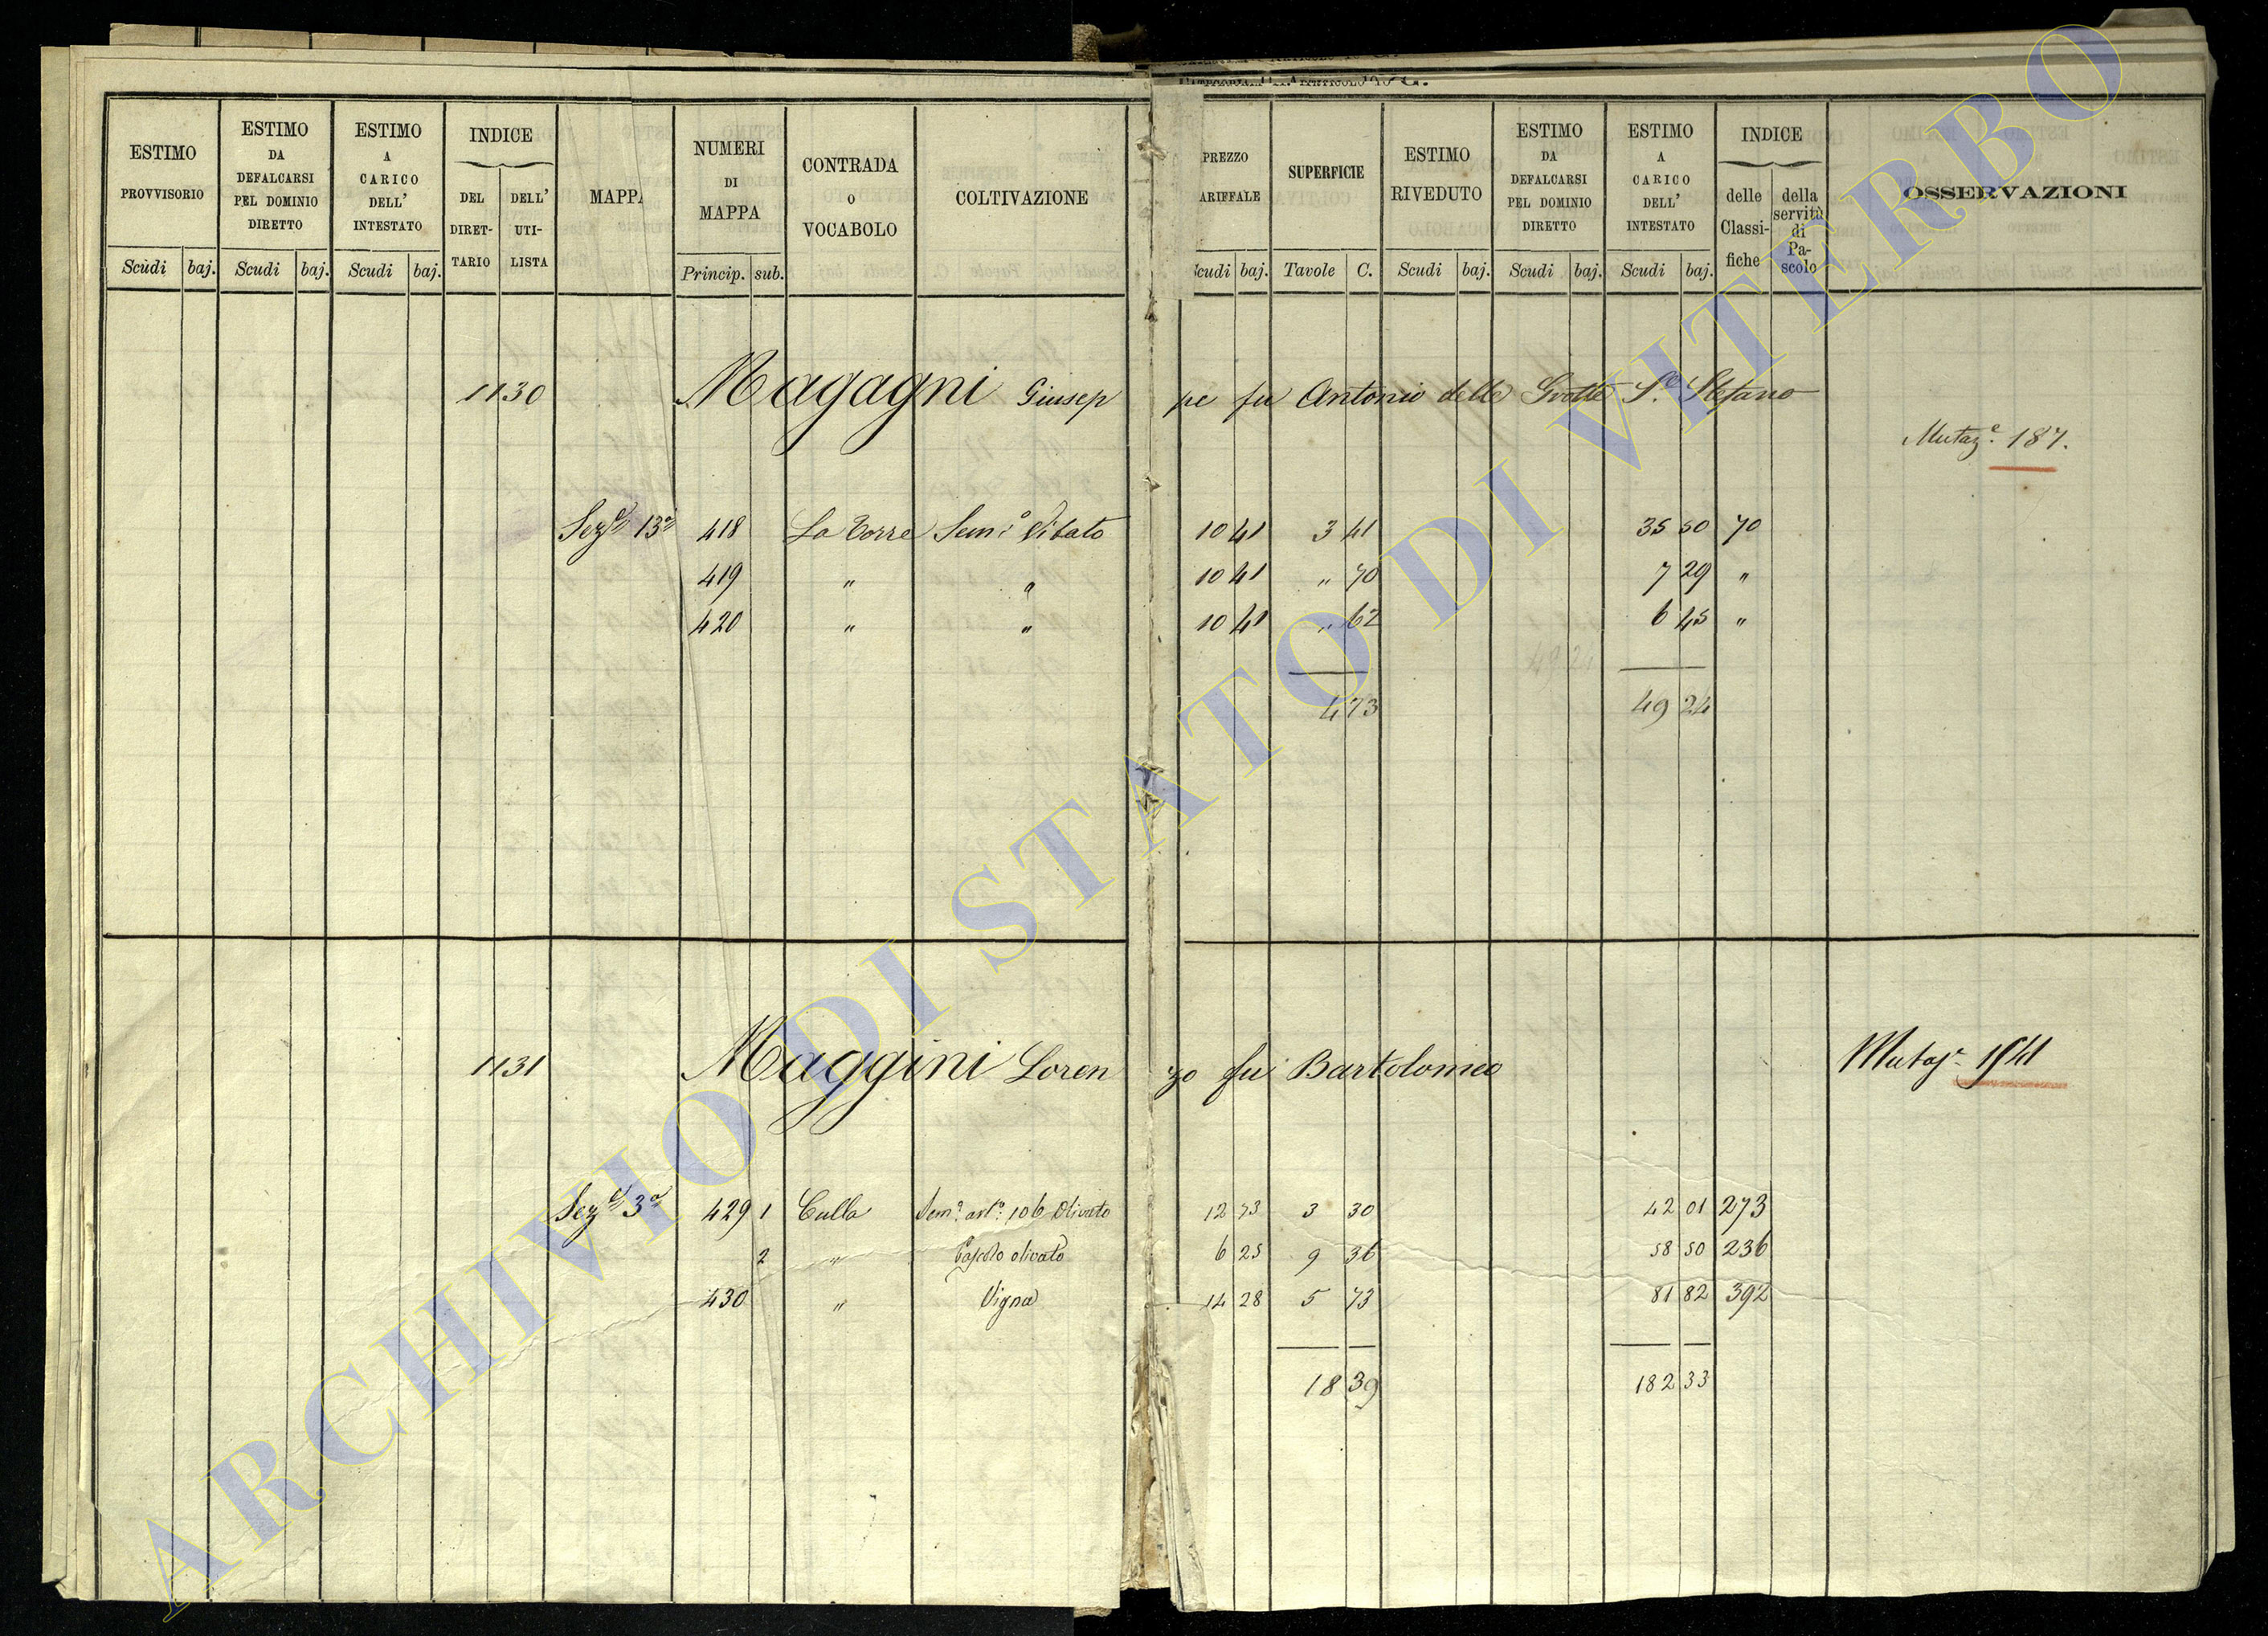 ESTIMO PROVVISORIO | ESTIMO DA DEFALCARSI PEL DOMINIO DIRETTO | ESTIMO A CARICO DELL' INTESTATO | INDICE DEL DIRET-TARIO | DELL' UTI-LISTA | MAPPA | NUMERI DI MAPPA | CONTRADA O VOCABOLO | COLTIVAZIONE | PREZZO ARIFFALE | SUPERFICIE | ESTIMO RIVEDUTO | ESTIMO DA DEFALCARSI PEL DOMINIO DIRETTO | ESTIMO A CARICO DELL' INTESTATO | INDICE delle Classi-fiche | della servitù di Pa-scolo | OSSERVAZIONI
Scudi baj. Scudi baj. Scudi baj. Princip. sub. cudi baj. Tavole C. Scudi baj. Scudi baj. Scudi baj.
1130 Magagni Giusep pe fu Antonio delle Grotte S. Stefano
Mutaz.e 187.
Sez.e 13a 418 La Torre Sem.o Vitato 10 41 3 41 35 50 70
419 " " 10 41 " 70 7 29 "
420 " " 10 41 " 62 6 45 "
49 24
4 73 49 24
1131 Maggini Loren zo fu Bartolomeo
Sez.e 3a 429 1 Culla Sem.o Olivato 12 73 3 30 42 01 273
2 " Pascolo olivato 6 25 9 36 58 50 236
430 " Vigna 14 28 5 73 81 82 392
18 39 182 33
ARCHIVIO DI STATO DI VITERBO